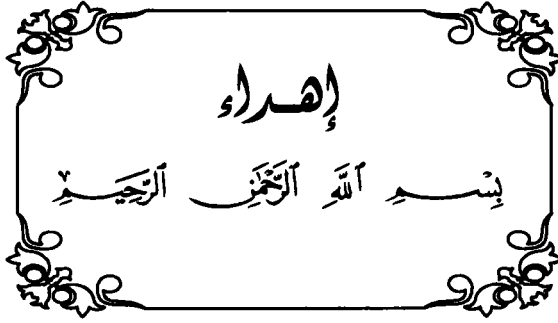 إهداء
بِسْمِ ٱللَّهِ ٱلرَّحْمَٰنِ ٱلرَّحِيمِ